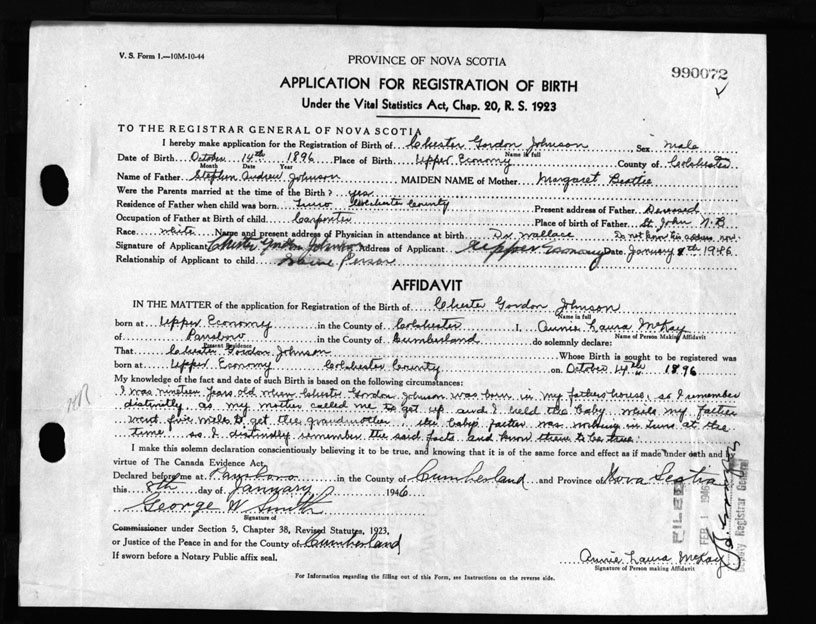 V. S. Form 1.—10M-10-44
PROVINCE OF NOVA SCOTIA
990072
APPLICATION FOR REGISTRATION OF BIRTH
Under the Vital Statistics Act, Chap. 20, R. S. 1923
TO THE REGISTRAR GENERAL OF NOVA SCOTIA
I hereby make application for the Registration of Birth of Chester Gordon Johnson Sex Male
Name in full
Date of Birth October 14th 1896 Place of Birth Upper Economy County of Colchester
Month Date Year
Name of Father Stephen Andrew Johnson MAIDEN NAME of Mother Margaret Beattie
Were the Parents married at the time of the Birth? yes
Residence of Father when child was born Truro Colchester County Present address of Father Deceased
Occupation of Father at Birth of child Carpenter Place of birth of Father St John N.B
Race white Name and present address of Physician in attendance at birth Dr Wallace Do not know his address now
Signature of Applicant Chester Gordon Johnson Address of Applicant Upper Economy Date January 8th 1946
Relationship of Applicant to child Same Person
AFFIDAVIT
IN THE MATTER of the application for Registration of the Birth of Chester Gordon Johnson
Name in full
born at Upper Economy in the County of Colchester I, Annie Laura McKay
Name of Person Making Affidavit
of Parrsboro in the County of Cumberland do solemnly declare:
Present Residence
That Chester Gordon Johnson Whose Birth is sought to be registered was
born at Upper Economy Colchester County on October 14th 1896
My knowledge of the fact and date of such Birth is based on the following circumstances:
I was nineteen years old when Chester Gordon Johnson was born in my fathers house, so I remember
distinctly as my mother called me to get up and I held the baby while my father
went five miles to get the grandmother. the baby's father was working in Truro at the
time so I distinctly remember the said facts and know them to be true.
I make this solemn declaration conscientiously believing it to be true, and knowing that it is of the same force and effect as if made under oath and by
virtue of The Canada Evidence Act.
Declared before me at Parrsboro in the County of Cumberland and Province of Nova Scotia
this 8th day of January 1946
George W Smith
Signature of
Commissioner under Section 5, Chapter 38, Revised Statutes, 1923,
or Justice of the Peace in and for the County of Cumberland
If sworn before a Notary Public affix seal.
Annie Laura McKay
Signature of Person making Affidavit
For Information regarding the filling out of this Form, see Instructions on the reverse side.
FILED
FEB 1 1946
Deputy Registrar General